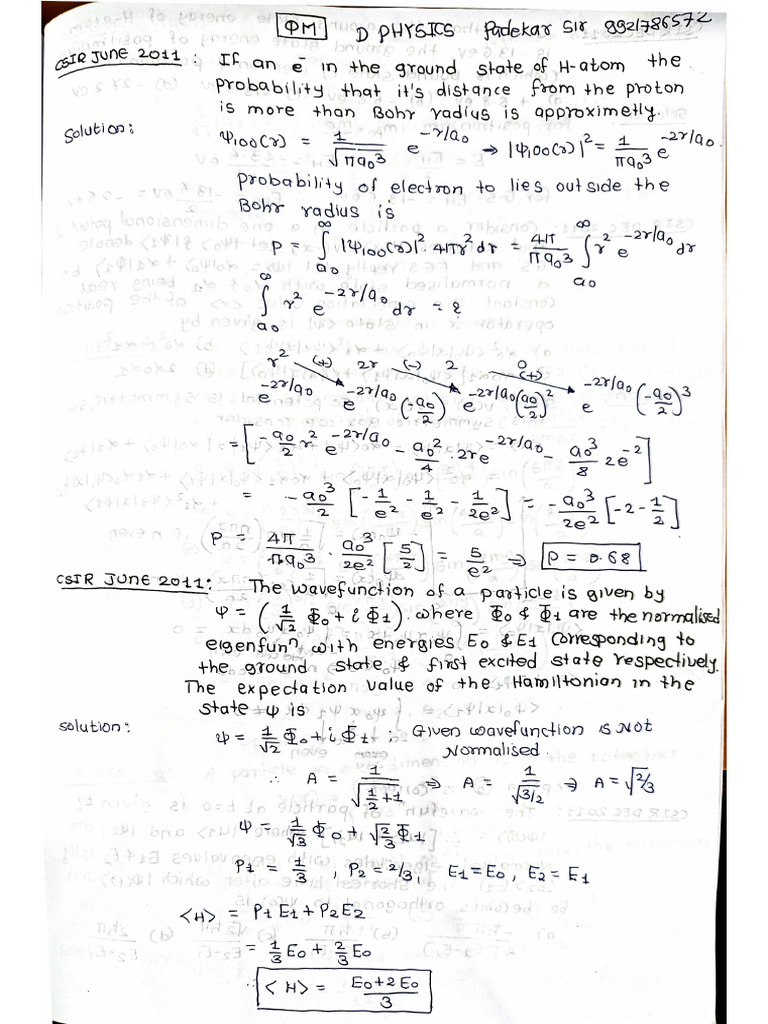 ΦM D PHYSICS Padekar Sir 9921786572
CSIR JUNE 2011 : If an e⁻ in the ground state of H-atom the
probability that it's distance from the proton
is more than Bohr radius is approximetly.
Solution: Ψ₁₀₀(r) = 1/√(πa₀³) e^(-r/a₀) → |Ψ₁₀₀(r)|² = 1/(πa₀³) e^(-2r/a₀)
probability of electron to lies outside the
Bohr radius is
P = ∫_{a₀}^{∞} |Ψ₁₀₀(r)|² 4πr² dr = 4π/(πa₀³) ∫_{a₀}^{∞} r² e^(-2r/a₀) dr
∫_{a₀}^{∞} r² e^(-2r/a₀) dr = ?
r² (+) 2r (-) 2 (+) 0
e^(-2r/a₀) e^(-2r/a₀)(-a₀/2) e^(-2r/a₀)(a₀/2)² e^(-2r/a₀)(-a₀/2)³
= [-a₀/2 r² e^(-2r/a₀) - a₀²/4 · 2r e^(-2r/a₀) - a₀³/8 2e^(-2)]
= -a₀³/2 [-1/e² - 1/e² - 1/2e²] = -a₀³/2e² [-2 - 1/2]
P = 4π/(πa₀³) · a₀³/2e² [5/2] = 5/e² ⇒ P = 0.68
CSIR JUNE 2011: The wavefunction of a particle is given by
Ψ = (1/√2 Φ₀ + i Φ₁). where Φ₀ & Φ₁ are the normalised
eigenfunⁿ with energies E₀ & E₁ Corresponding to
the ground state & first excited state respectively.
The expectation value of the Hamiltonian in the
state Ψ is
Solution: Ψ = 1/√2 Φ₀ + i Φ₁ ; Given wavefunction is Not
Normalised.
∴ A = 1/√(1/2 + 1) ⇒ A = 1/√(3/2) ⇒ A = √(2/3)
Ψ = 1/√3 Φ₀ + √(2/3) Φ₁
P₁ = 1/3 , P₂ = 2/3, E₁ = E₀, E₂ = E₁
<H> = P₁E₁ + P₂E₂
= 1/3 E₀ + 2/3 E₀
<H> = (E₀ + 2E₀)/3